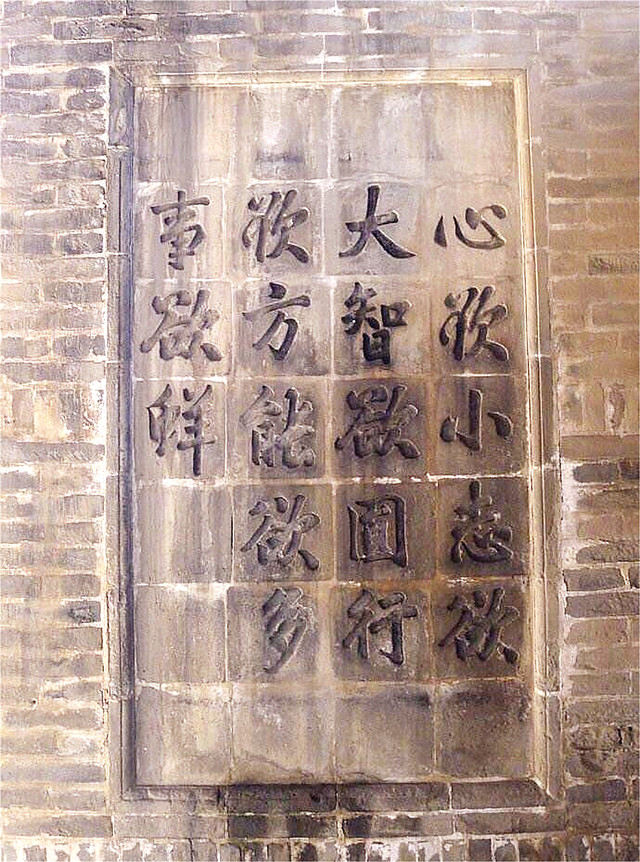 心欲小志欲
大智欲圆行
欲方能欲多
事欲鲜